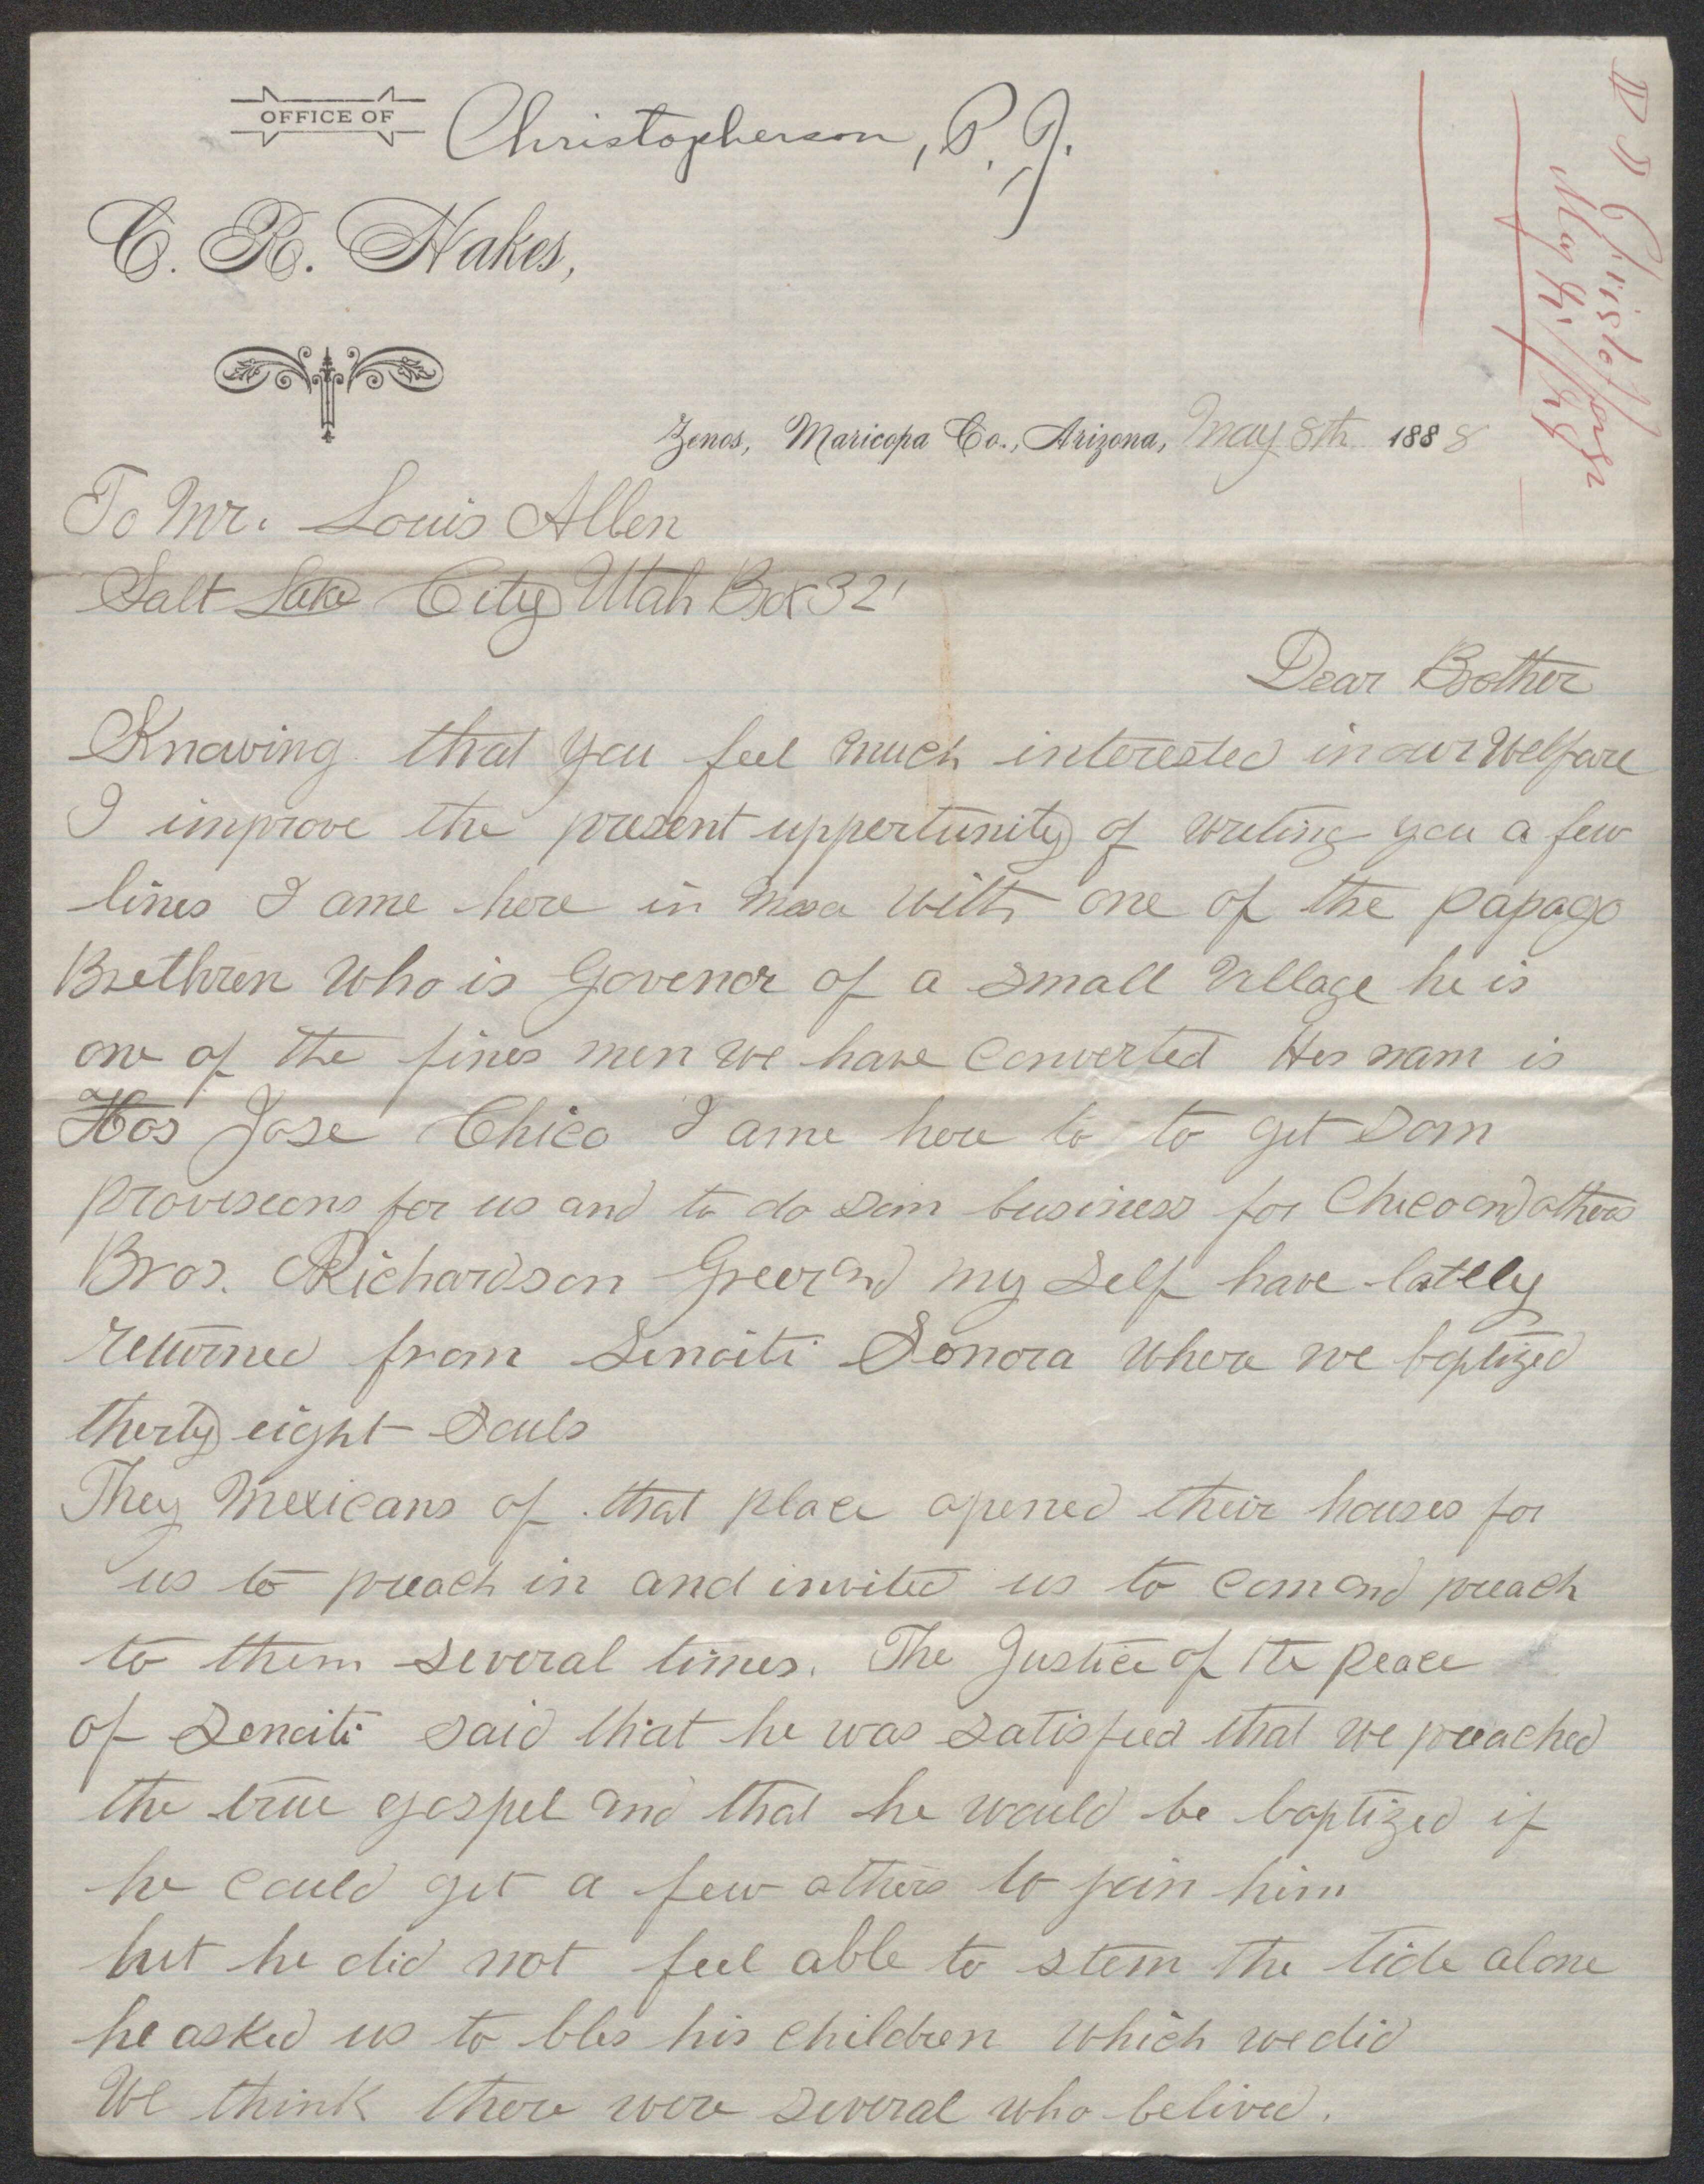 OFFICE OF
Christopherson, P. J.
C. R. Hakes,
Zenos, Maricopa Co., Arizona, May 8th 1888
P J Christofforsn
May 8, /88
To Mr. Louis Allen
Salt Lake City Utah Box 321
Dear Brother
Knowing that you feel much interested in our Welfare
I improve the present uppertunity of writing you a few
lines I ame here in Masa with one of the papago
Brethren Who is Govenor of a small Village he is
one of the fines men we have Converted Hes nam is
Hos Jose Chico I ame here to to get Som
proviseons for us and to do som business for Chico and others
Bros. Richardson Greer and my Self have lattely
returned from Senoiti Sonora where we baptized
therty eight Souls
They Mexicans of that place opened their houses for
us to preach in and invited us to com and preach
to them several times. The Justice of the peace
of Senoiti said that he was satisfied that we preached
the true gospel and that he would be baptized if
he could get a few others to join him
but he did not feel able to stem the tide alone
he asked us to bles his children which we did
We think there were several who belived.